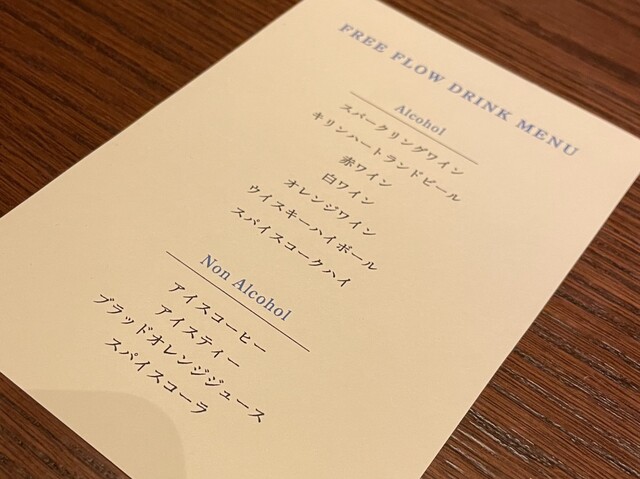 FREE FLOW DRINK MENU
Alcohol
スパークリングワイン
キリンハートランドビール
赤ワイン
白ワイン
オレンジワイン
ウイスキーハイボール
スパイスコークハイ
Non Alcohol
アイスコーヒー
アイスティー
ブラッドオレンジジュース
スパイスコーラ